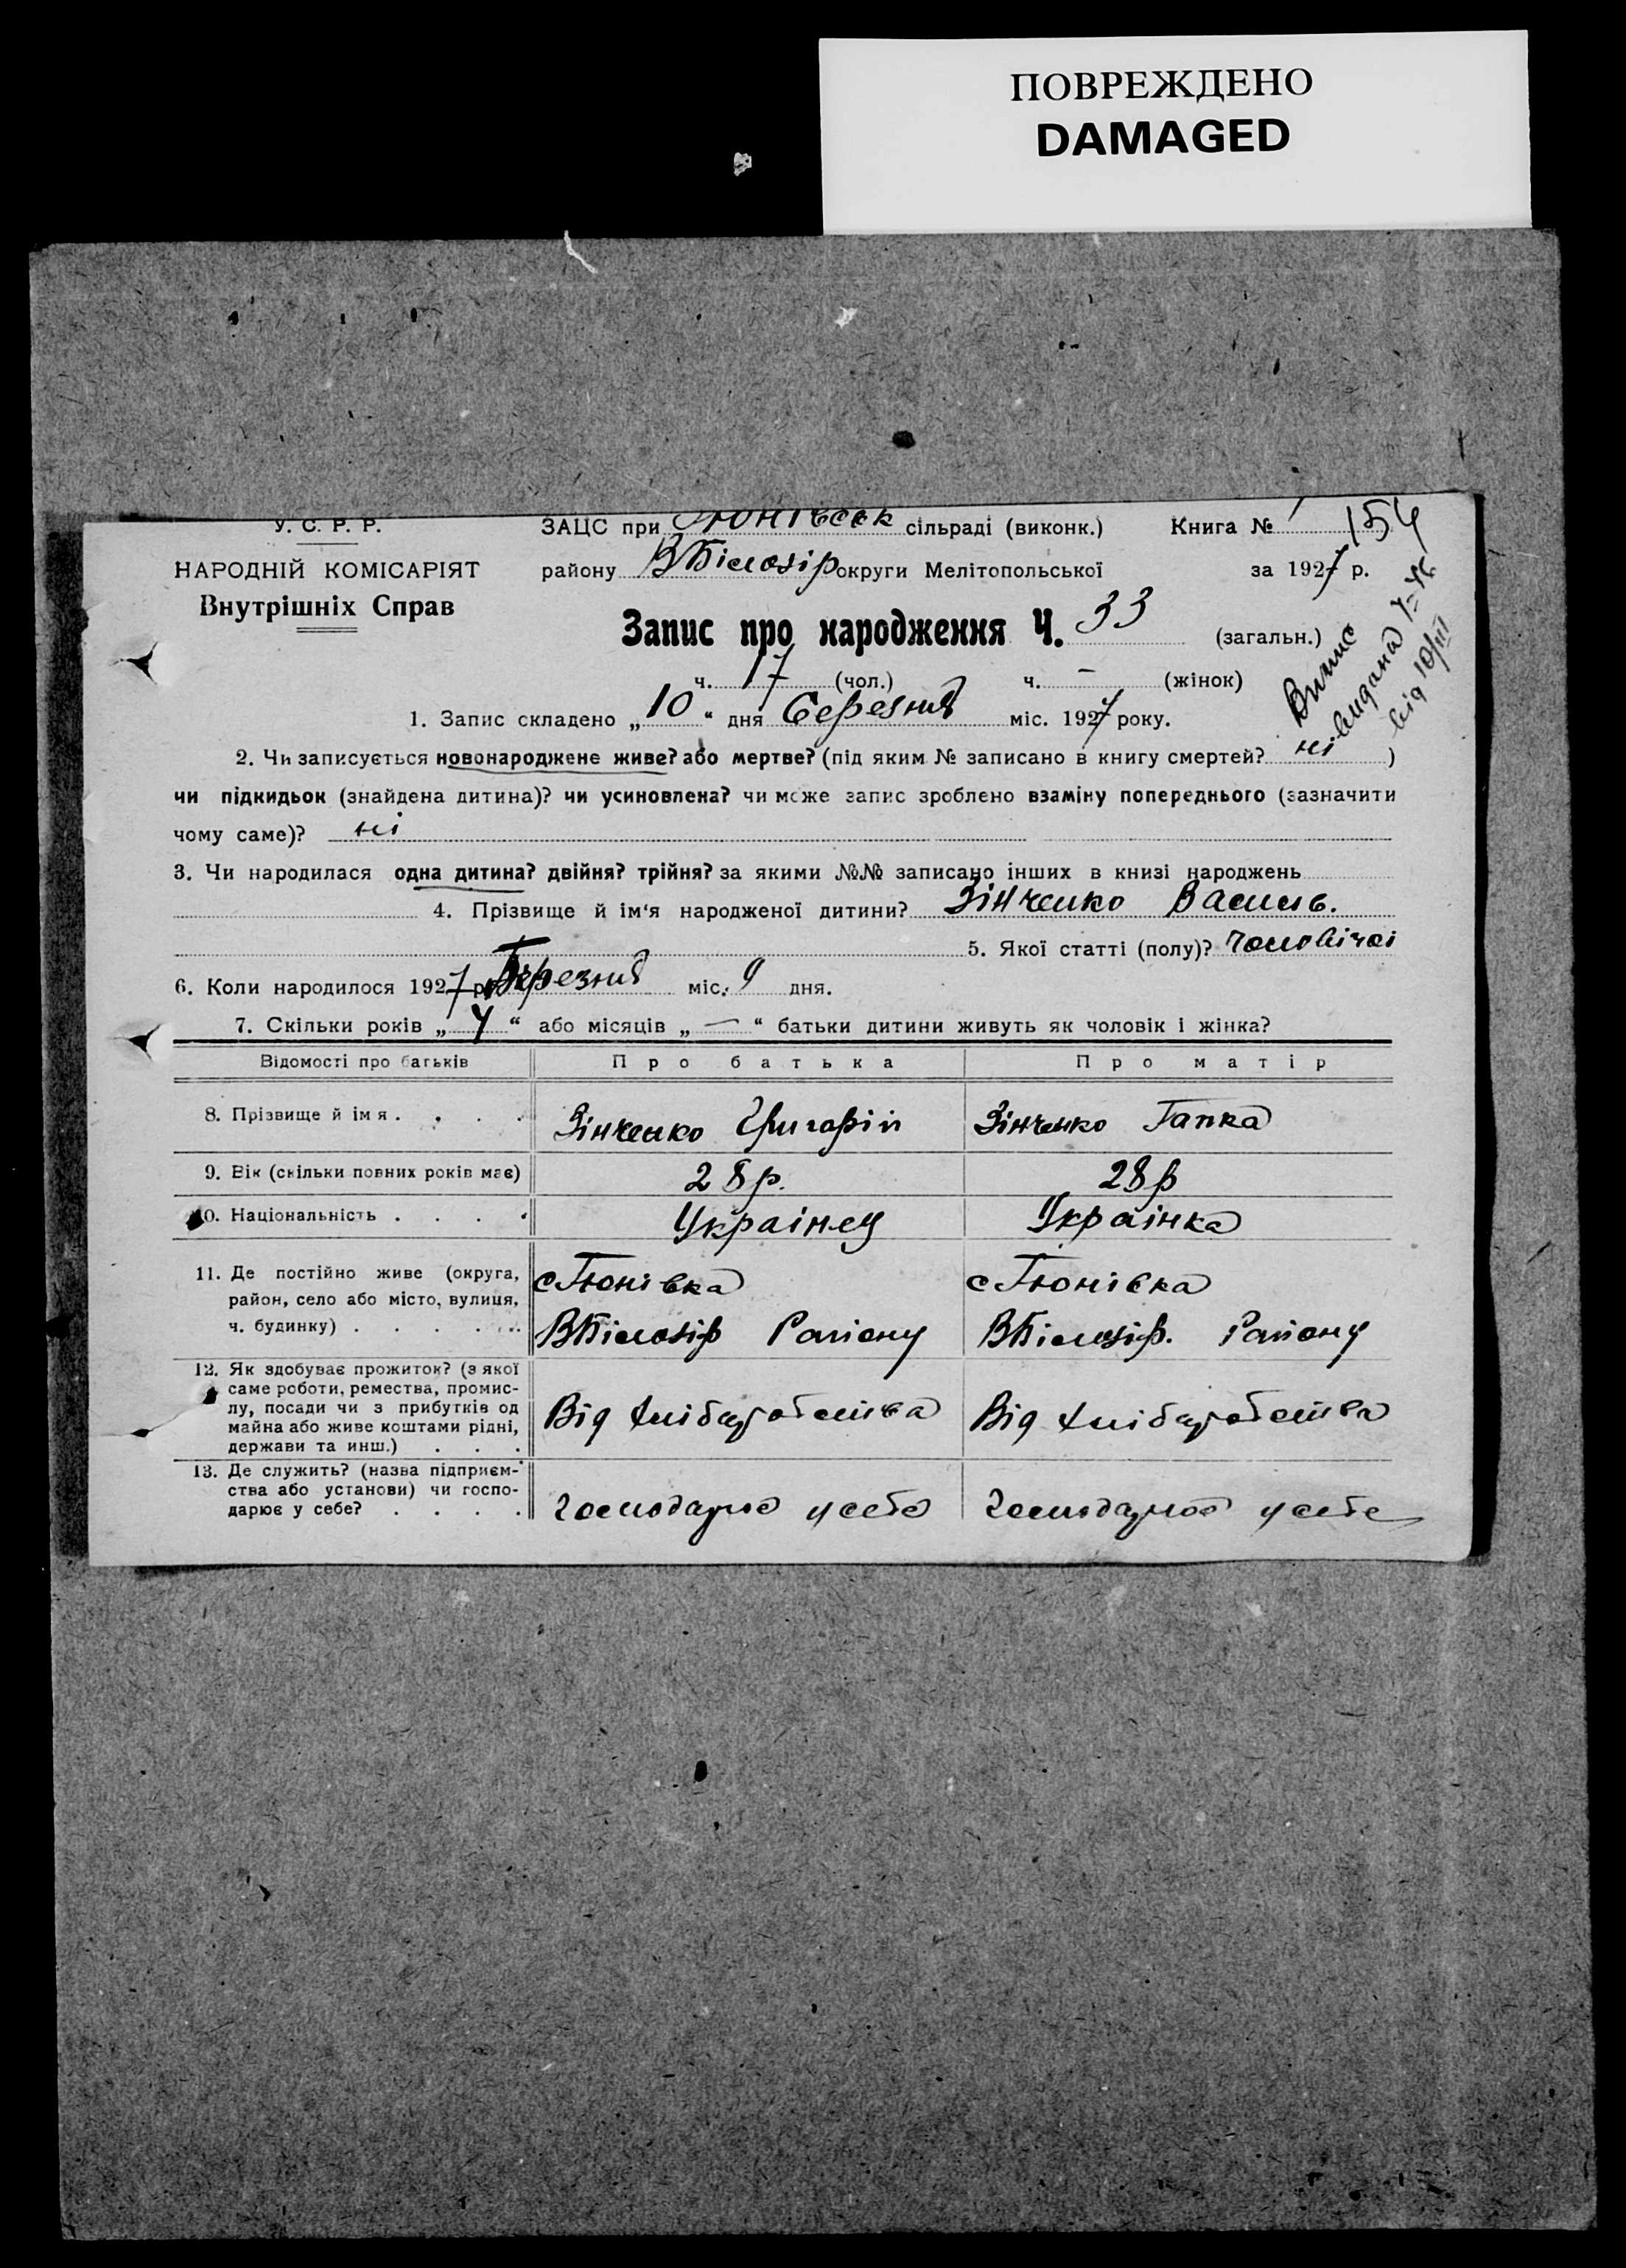 ПОВРЕЖДЕНО
DAMAGED
У. С. Р. Р.
НАРОДНІЙ КОМІСАРІЯТ
Внутрішніх Справ
ЗАЦС при Тюнівськ сільраді (виконк.) Книга № 1 154
району ВБілозір округи Мелітопольської за 1927 р.
Запис про народження Ч. 33 (загальн.)
ч. 17 (чол.) ч. – (жінок)
Випис
видана
від 10/III
1. Запис складено „10“ дня березня міс. 1927 року.
2. Чи записується новонароджене живе? або мертве? (під яким № записано в книгу смертей? ні )
чи підкидьок (знайдена дитина)? чи усиновлена? чи може запис зроблено взаміну попереднього (зазначити
чому саме)? ні
3. Чи народилася одна дитина? двійня? трійня? за якими №№ записано інших в книзі народжень
4. Прізвище й ім‘я народженої дитини? Зінченко Василь.
5. Якої статті (полу)? чоловічоі
6. Коли народилося 1927 р. Березня міс. 9 дня.
7. Скільки років „4“ або місяців „—“ батьки дитини живуть як чоловік і жінка?
Відомості про батьків Про батька Про матір
8. Прізвище й імя . . . . Зінченко Григорій Зінченко Гапка
9. Вік (скільки повних років має) 28р. 28р
10. Національність . . . . Украінец Украінка
11. Де постійно живе (округа, район, село або місто, вулиця, ч. будинку) . . . . . .
с Тюнівка
ВБілозір Району
с Тюнівка
ВБілозір. Району
12. Як здобуває прожиток? (з якої саме роботи, ремества, промислу, посади чи з прибутків од майна або живе коштами рідні, держави та инш.) . . .
Від хліборобства
Від хліборобства
13. Де служить? (назва підприємства або установи) чи господарює у себе? . . . .
Господарює у себе
Господарює у себе